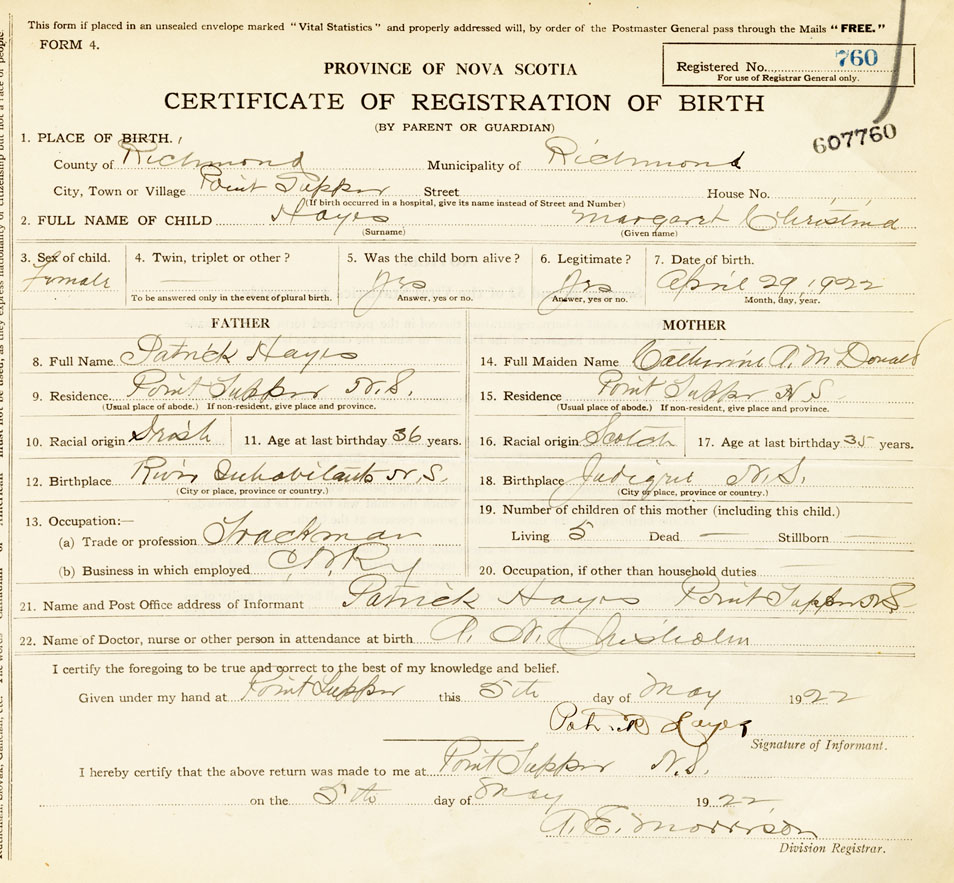 This form if placed in an unsealed envelope marked "Vital Statistics" and properly addressed will, by order of the Postmaster General pass through the Mails "FREE."
FORM 4.
Registered No. 760
For use of Registrar General only.
PROVINCE OF NOVA SCOTIA
CERTIFICATE OF REGISTRATION OF BIRTH
(BY PARENT OR GUARDIAN)
607760
1. PLACE OF BIRTH.
County of Richmond Municipality of Richmond
City, Town or Village Point Tupper Street House No.
(If birth occurred in a hospital, give its name instead of Street and Number)
2. FULL NAME OF CHILD Hayes Margaret Christina
(Surname) (Given name)
3. Sex of child. 4. Twin, triplet or other? 5. Was the child born alive? 6. Legitimate? 7. Date of birth.
Female Yes Yes April 29, 1922
To be answered only in the event of plural birth. Answer, yes or no. Answer, yes or no. Month, day, year.
FATHER MOTHER
8. Full Name Patrick Hayes 14. Full Maiden Name Catherine A. McDonald
9. Residence Point Tupper N.S. 15. Residence Point Tupper N.S.
(Usual place of abode.) If non-resident, give place and province. (Usual place of abode.) If non-resident, give place and province.
10. Racial origin Irish 11. Age at last birthday 36 years. 16. Racial origin Scotch 17. Age at last birthday 35 years.
12. Birthplace River Inhabitants N.S. 18. Birthplace Judique N.S.
(City or place, province or country.) (City or place, province or country.)
13. Occupation:— 19. Number of children of this mother (including this child.)
(a) Trade or profession Trackman Living 5 Dead — Stillborn —
(b) Business in which employed C.N.Ry 20. Occupation, if other than household duties
21. Name and Post Office address of Informant Patrick Hayes Point Tupper N.S.
22. Name of Doctor, nurse or other person in attendance at birth P. N. Chisholm
I certify the foregoing to be true and correct to the best of my knowledge and belief.
Given under my hand at Point Tupper this 5th day of May 1922
Patrick Hayes
Signature of Informant.
I hereby certify that the above return was made to me at Point Tupper N.S.
on the 5th day of May 1922
A. E. Morrison
Division Registrar.